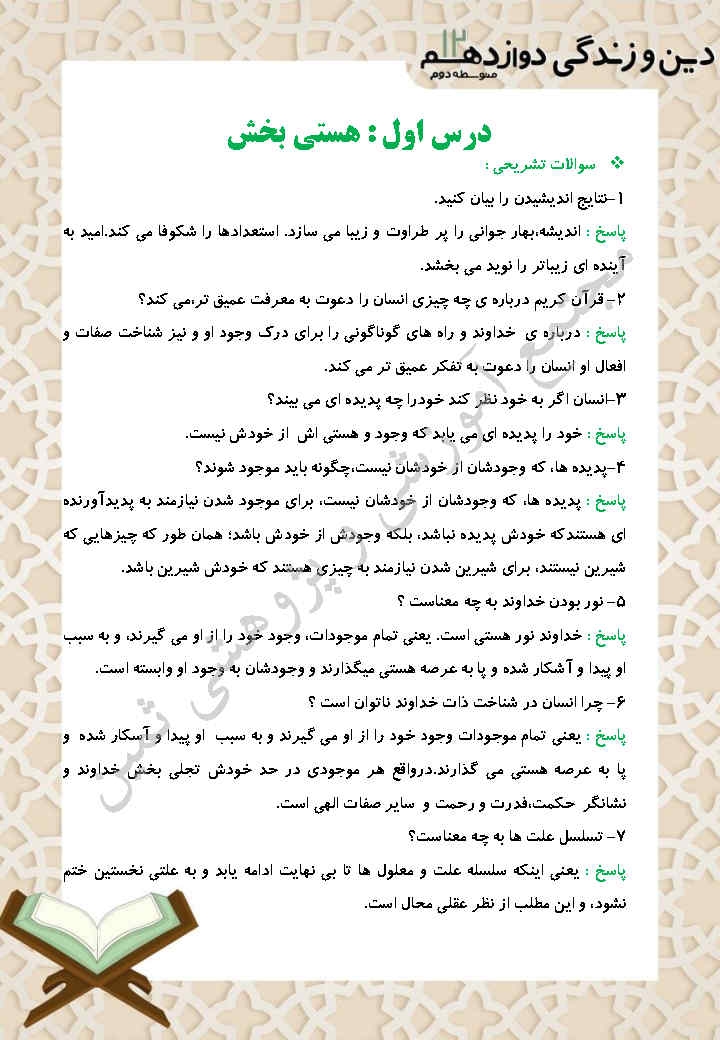 دین و زندگی دوازدهم ۱۲
متوسطه دوم
درس اول : هستی بخش
❖ سوالات تشریحی :
۱-نتایج اندیشیدن را بیان کنید.
پاسخ : اندیشه،بهار جوانی را پر طراوت و زیبا می سازد. استعدادها را شکوفا می کند.امید به
آینده ای زیباتر را نوید می بخشد.
۲- قرآن کریم درباره ی چه چیزی انسان را دعوت به معرفت عمیق تر،می کند؟
پاسخ : درباره ی خداوند و راه های گوناگونی را برای درک وجود او و نیز شناخت صفات و
افعال او انسان را دعوت به تفکر عمیق تر می کند.
۳-انسان اگر به خود نظر کند خودرا چه پدیده ای می بیند؟
پاسخ : خود را پدیده ای می یابد که وجود و هستی اش از خودش نیست.
۴-پدیده ها، که وجودشان از خودشان نیست،چگونه باید موجود شوند؟
پاسخ : پدیده ها، که وجودشان از خودشان نیست، برای موجود شدن نیازمند به پدیدآورنده
ای هستندکه خودش پدیده نباشد، بلکه وجودش از خودش باشد؛ همان طور که چیزهایی که
شیرین نیستند، برای شیرین شدن نیازمند به چیزی هستند که خودش شیرین باشد.
۵- نور بودن خداوند به چه معناست ؟
پاسخ : خداوند نور هستی است. یعنی تمام موجودات، وجود خود را از او می گیرند، و به سبب
او پیدا و آشکار شده و پا به عرصه هستی میگذارند و وجودشان به وجود او وابسته است.
۶- چرا انسان در شناخت ذات خداوند ناتوان است ؟
پاسخ : یعنی تمام موجودات وجود خود را از او می گیرند و به سبب او پیدا و آسکار شده و
پا به عرصه هستی می گذارند.درواقع هر موجودی در حد خودش تجلی بخش خداوند و
نشانگر حکمت،قدرت و رحمت و سایر صفات الهی است.
۷- تسلسل علت ها به چه معناست؟
پاسخ : یعنی اینکه سلسله علت و معلول ها تا بی نهایت ادامه یابد و به علتی نخستین ختم
نشود، و این مطلب از نظر عقلی محال است.
مجتمع آموزشی و پژوهشی ثمین